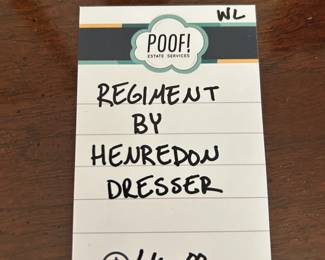 WL
POOF!
ESTATE SERVICES
REGIMENT
BY
HENREDON
DRESSER